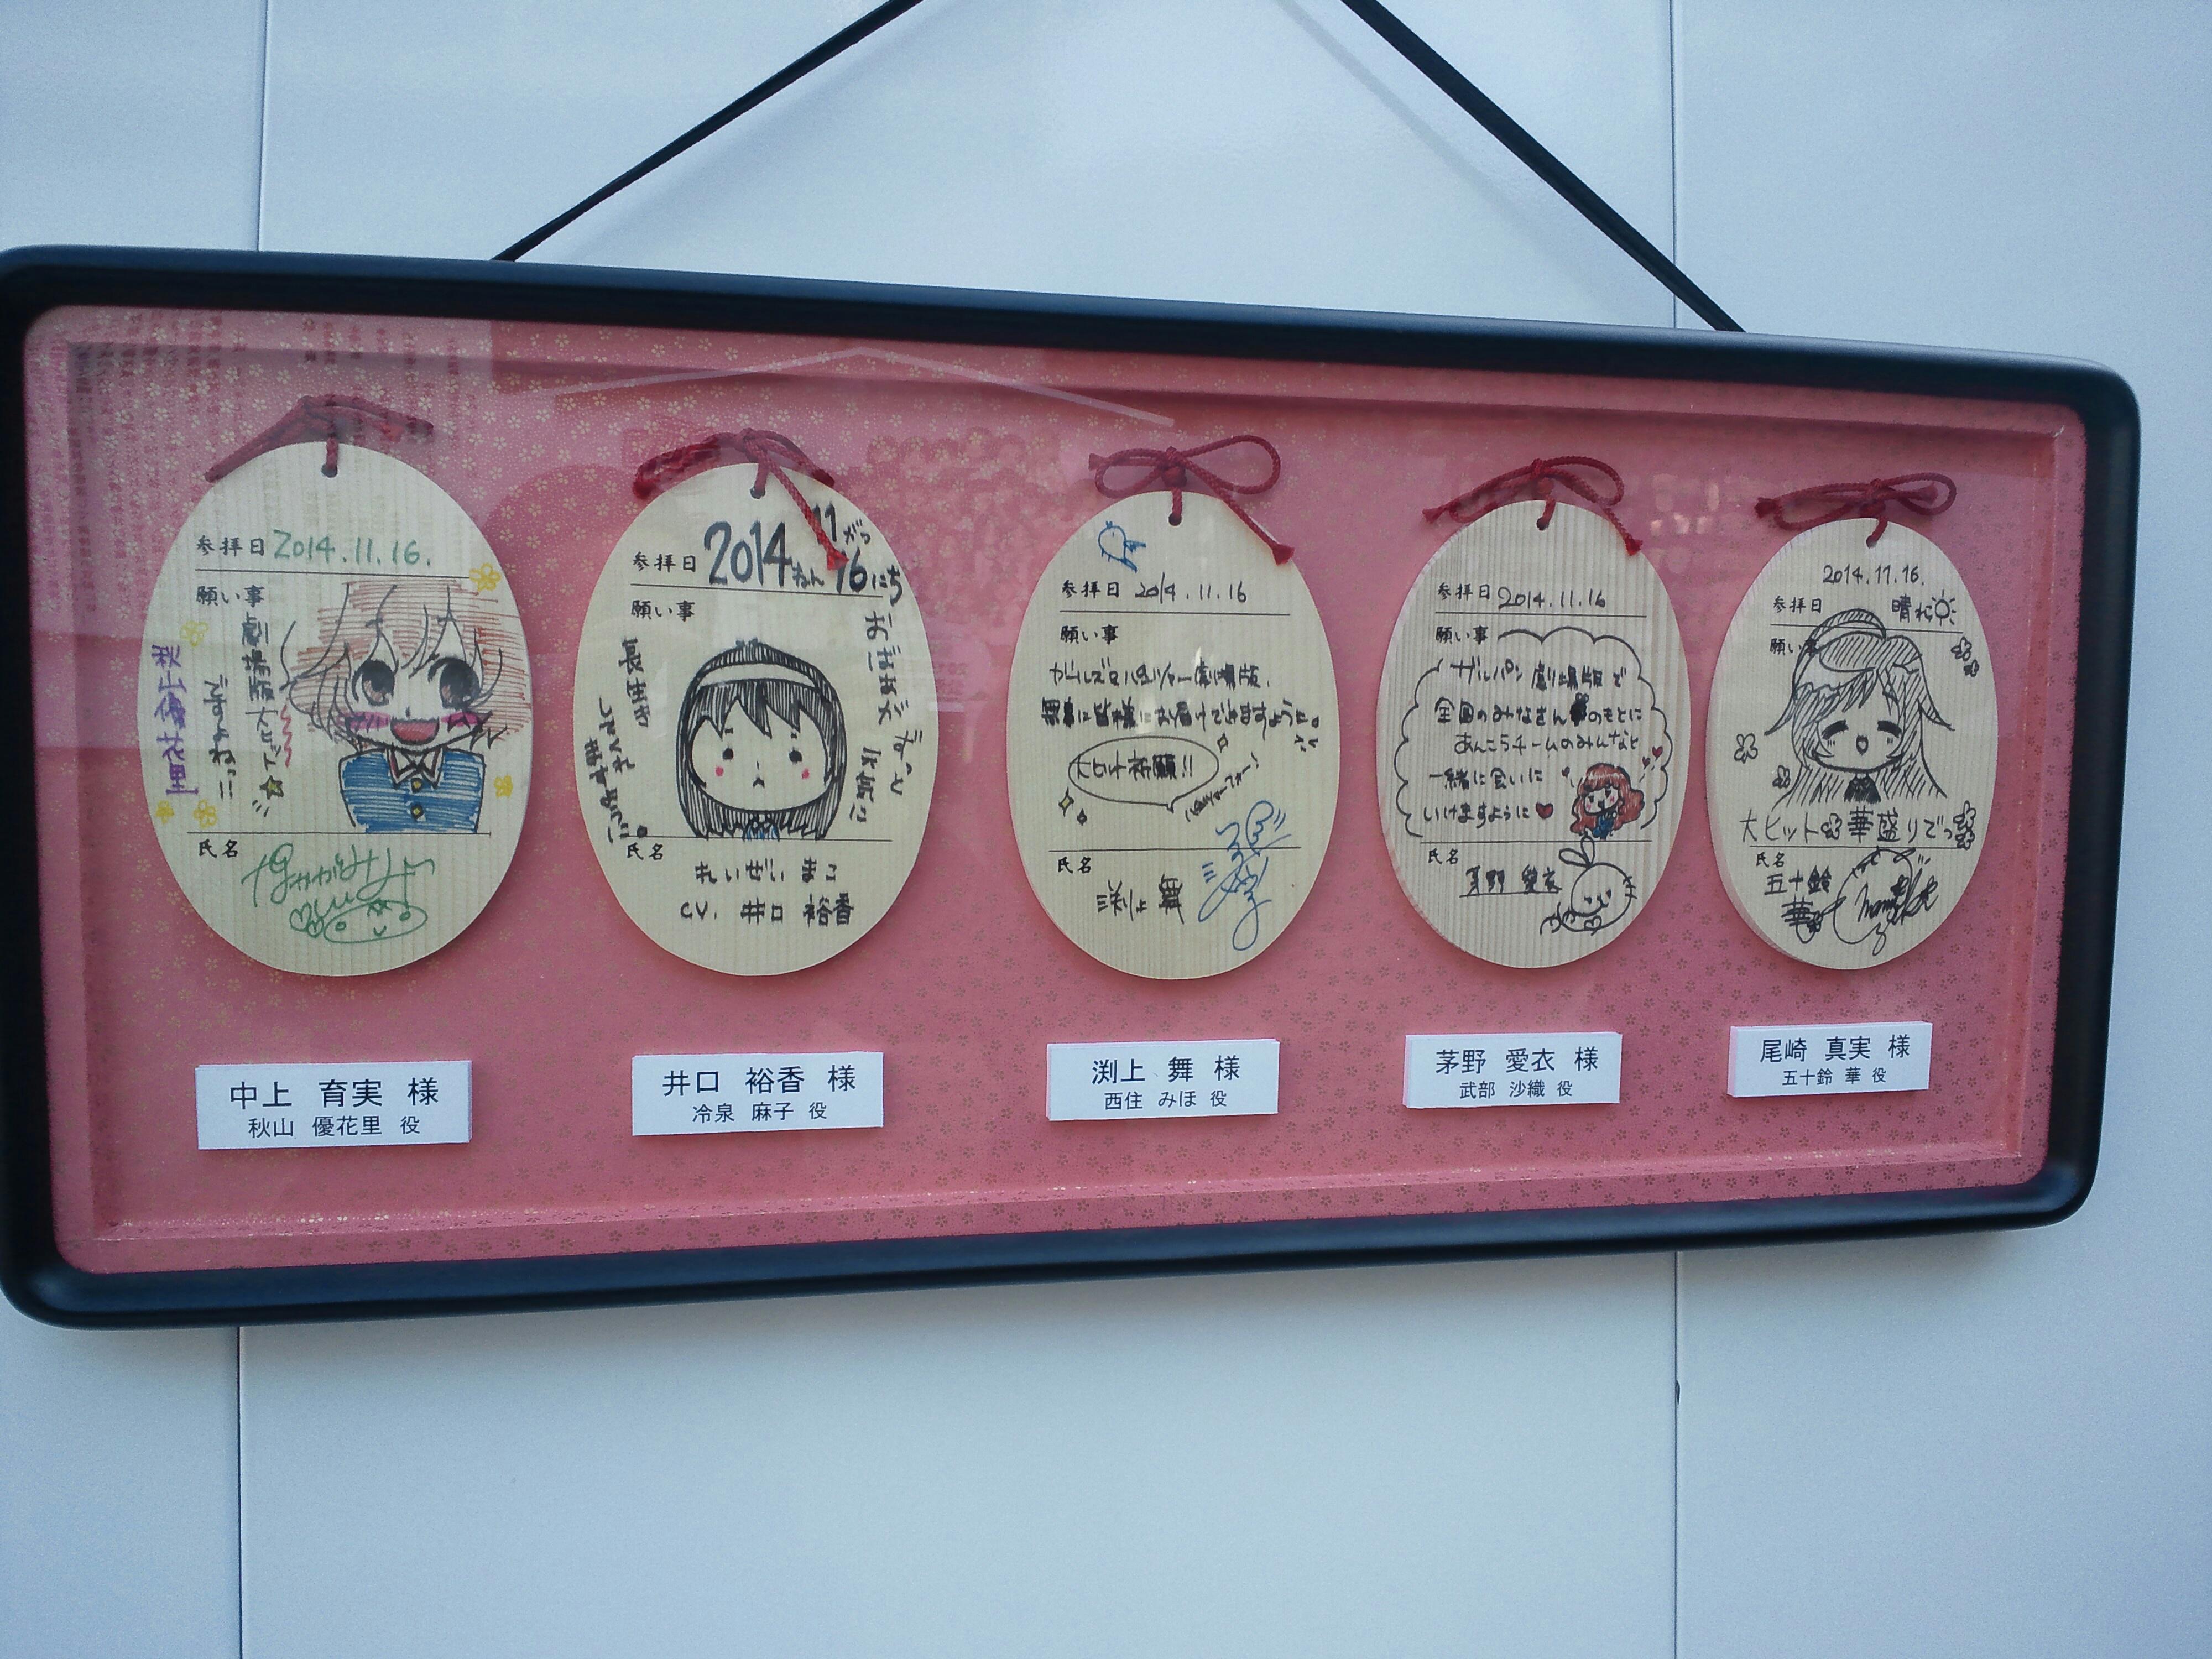 参拝日 2014.11.16.
願い事
劇場版大ヒット
ですよねっ!!
秋山優花里
氏名
中上 育実 様
秋山 優花里 役
参拝日 2014ねん 11がつ 16にち
願い事
おばぁがずっと
元気に
長生き
してくれ
ますように。
氏名
れいぜい まこ
CV. 井口 裕香
井口 裕香 様
冷泉 麻子 役
参拝日 2014.11.16
願い事
ガールズ&パンツァー劇場版、
無事に皆様にお届けできますように。
大ヒット祈願!!
(パンツァーフォー!)
氏名
渕上 舞
渕上 舞 様
西住 みほ 役
参拝日 2014.11.16
願い事
ガルパン劇場版で
全国のみなさんのもとに
あんこうチームのみんなと
一緒に会いに
いけますように♥
氏名
茅野 愛衣
茅野 愛衣 様
武部 沙織 役
2014.11.16.
参拝日 晴れ
願い事
大ヒット 華盛りでっ
氏名
五十鈴
華
尾崎 真実 様
五十鈴 華 役